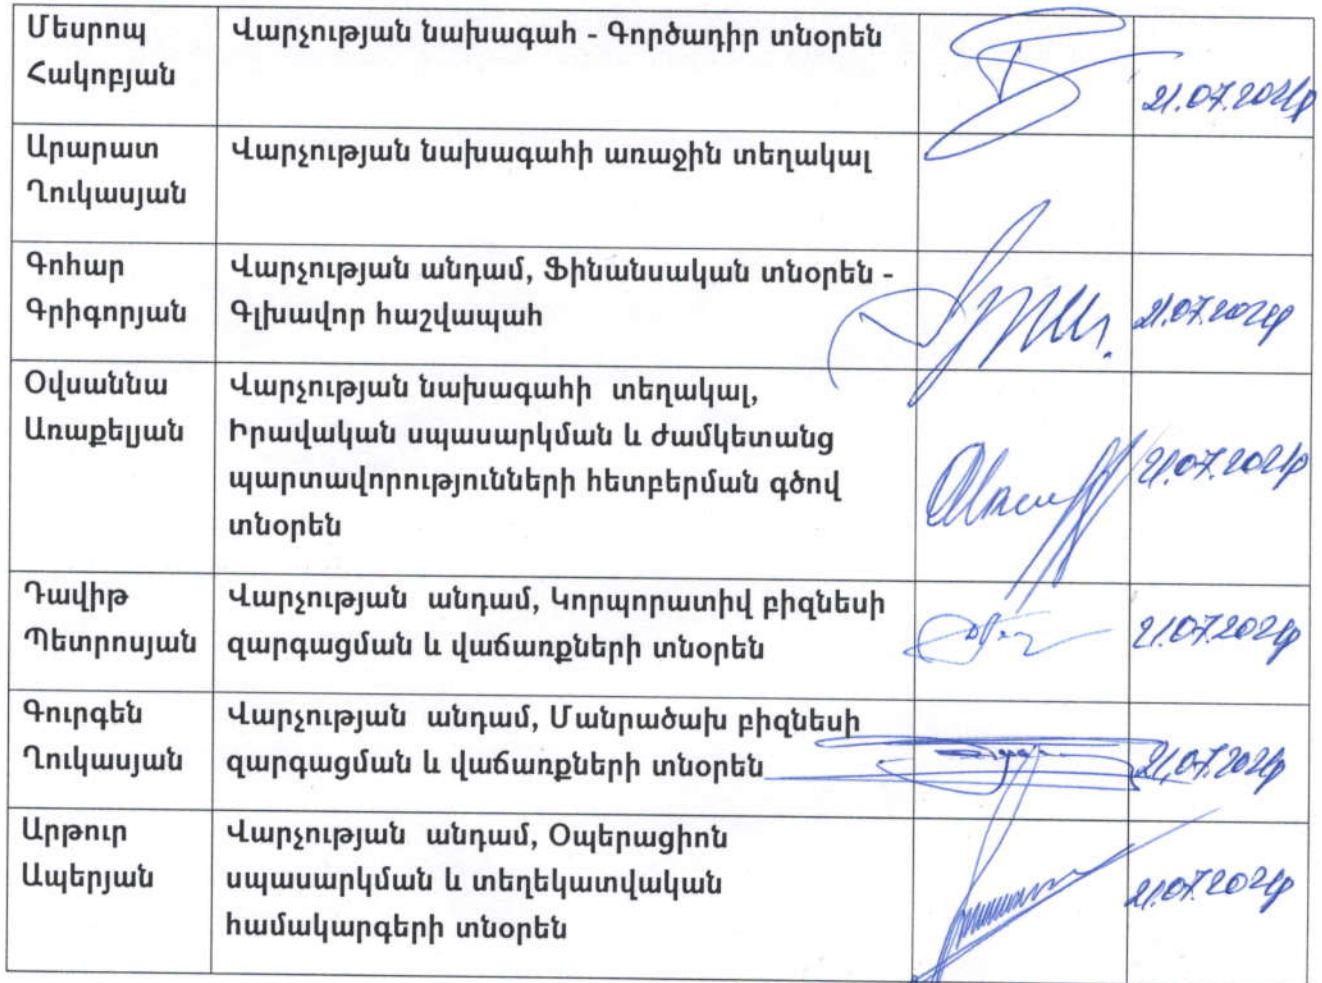 Մեսրոպ
Հակոբյան
Վարչության նախագահ - Գործադիր տնօրեն
21.07.2021թ
Արարատ
Ղուկասյան
Վարչության նախագահի առաջին տեղակալ
Գոհար
Գրիգորյան
Վարչության անդամ, Ֆինանսական տնօրեն -
Գլխավոր հաշվապահ
21.07.2021թ
Օվսաննա
Առաքելյան
Վարչության նախագահի տեղակալ,
Իրավական սպասարկման և ժամկետանց
պարտավորությունների հետբերման գծով
տնօրեն
21.07.2021թ
Դավիթ
Պետրոսյան
Վարչության անդամ, Կորպորատիվ բիզնեսի
զարգացման և վաճառքների տնօրեն
21.07.2021թ
Գուրգեն
Ղուկասյան
Վարչության անդամ, Մանրածախ բիզնեսի
զարգացման և վաճառքների տնօրեն
21.07.2021թ
Արթուր
Ապերյան
Վարչության անդամ, Օպերացիոն
սպասարկման և տեղեկատվական
համակարգերի տնօրեն
21.07.2021թ